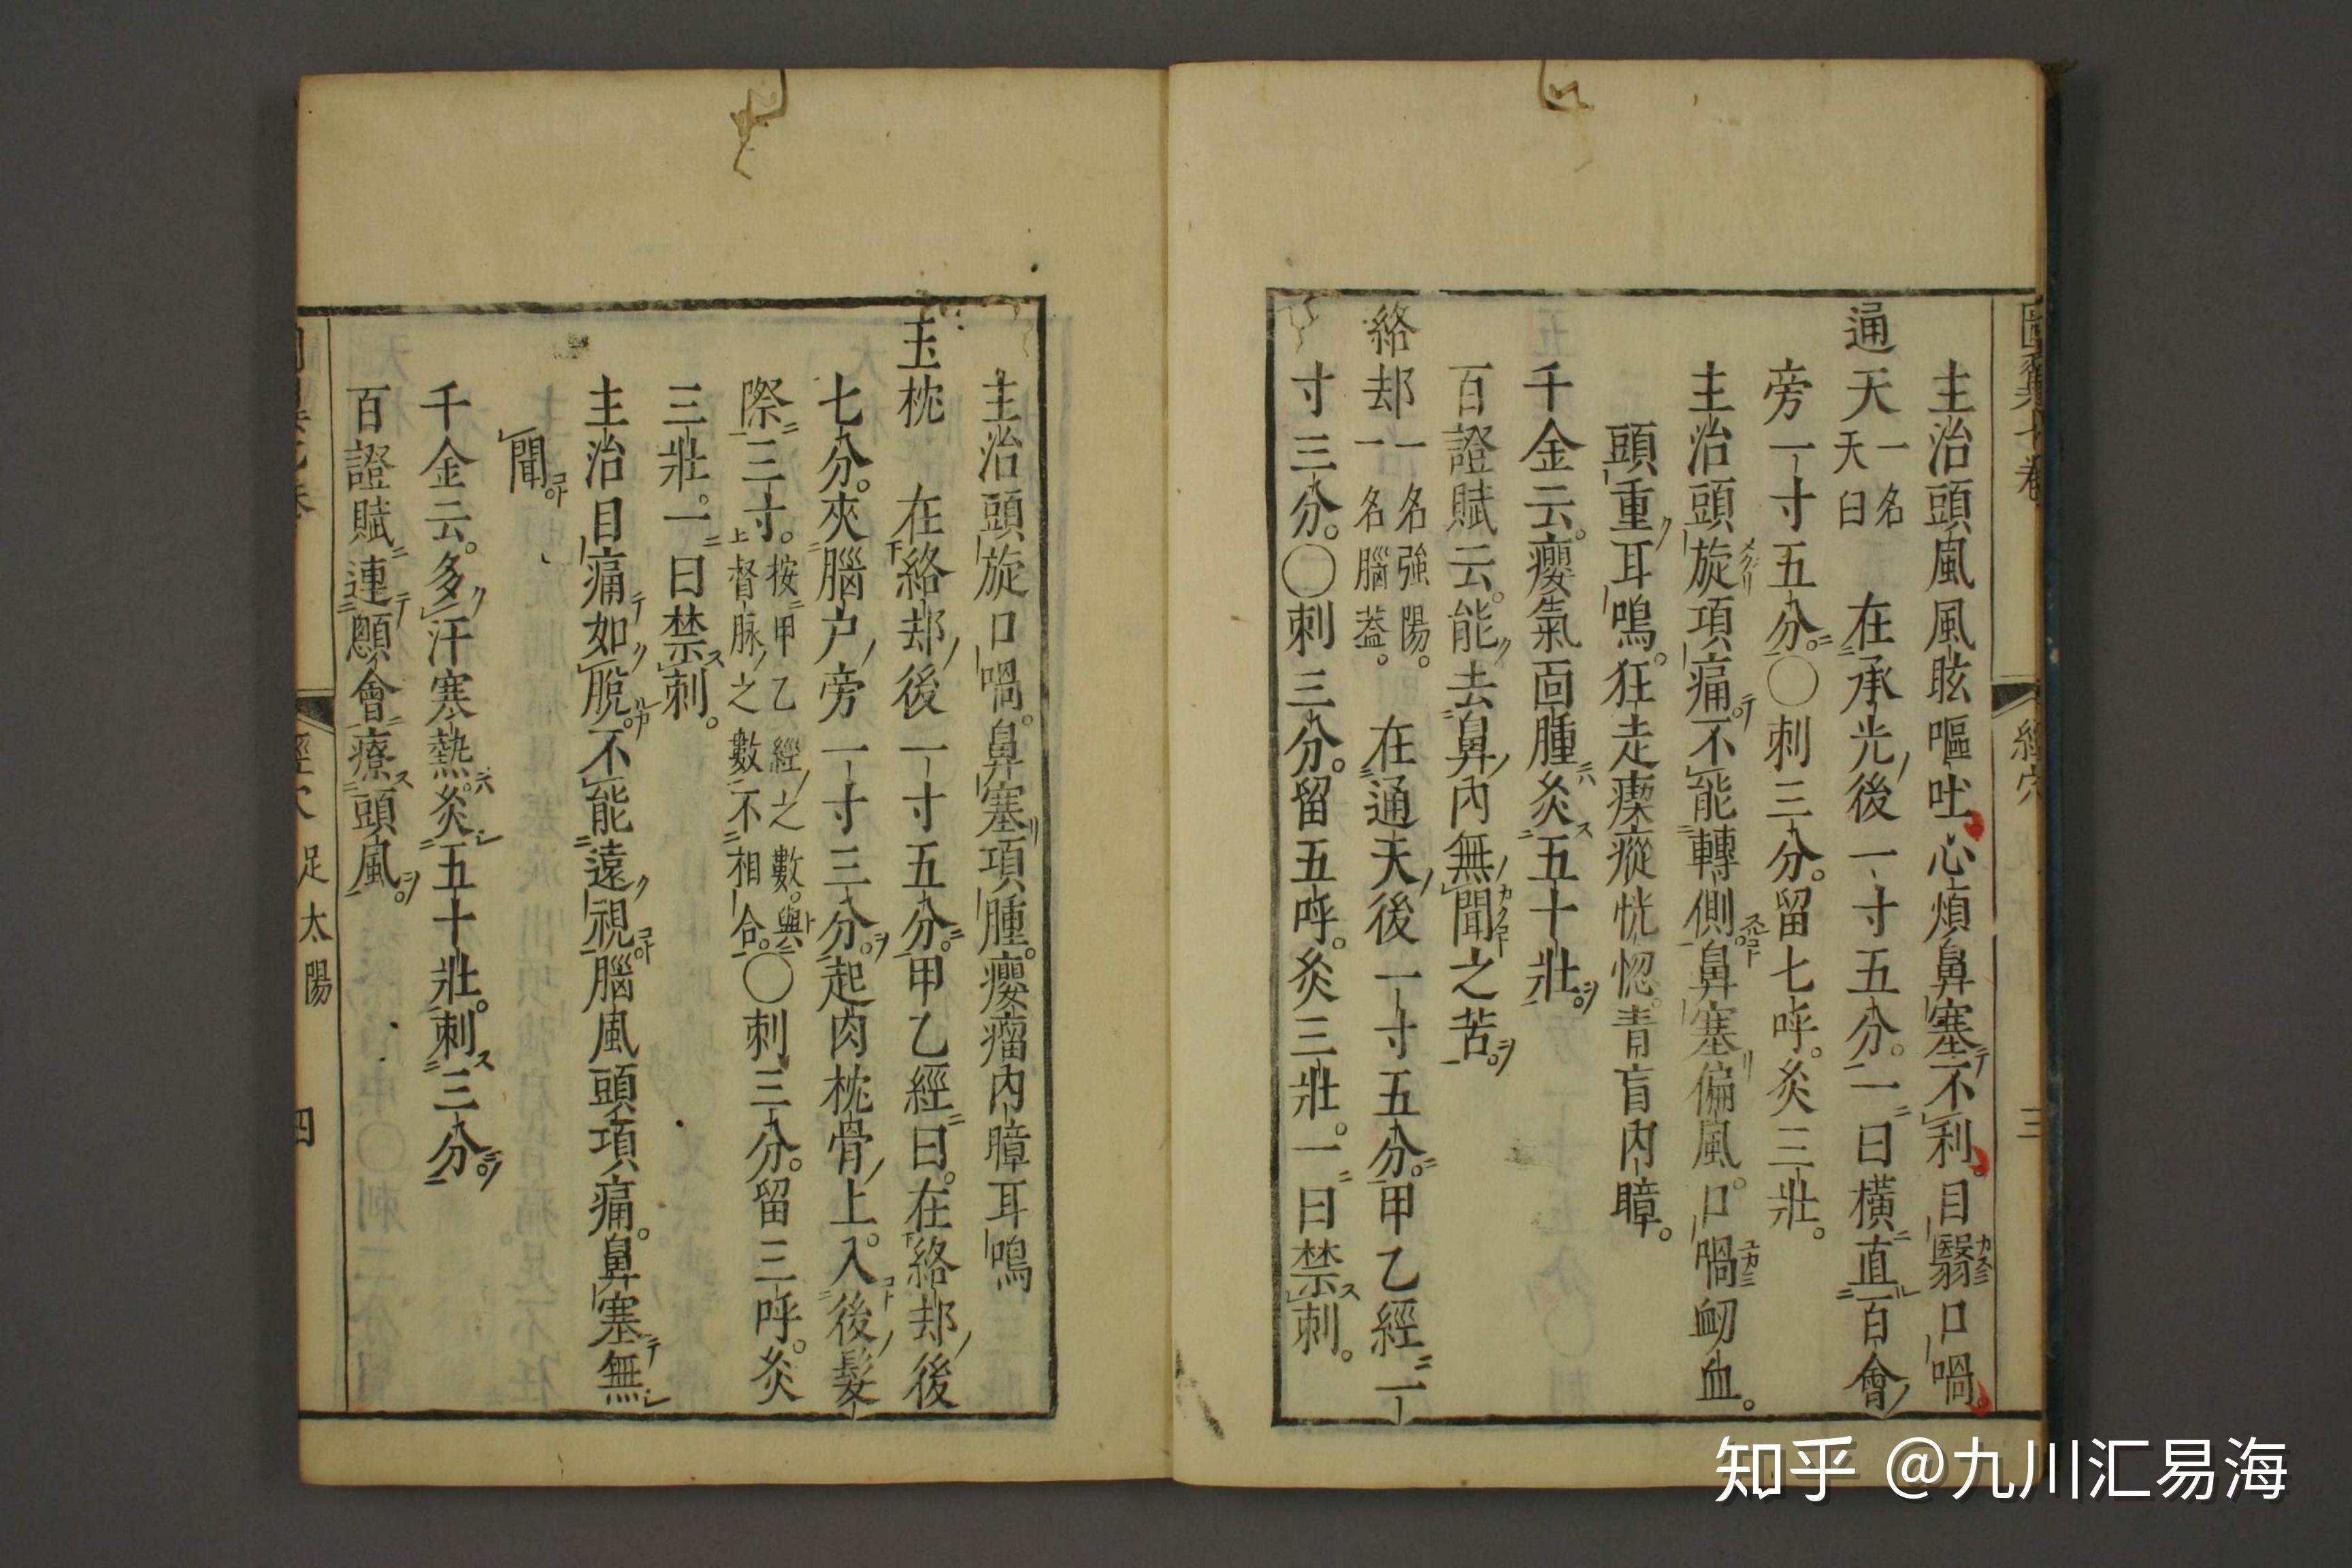 主治頭風風眩嘔吐心煩鼻塞不利。目翳口喎。
通天一名天臼　在承光後一寸五分。一曰橫直百會
旁一寸五分。〇刺三分。留七呼。灸三壯。
主治頭旋項痛不能轉側。鼻塞偏風。口喎衂血。
頭重耳鳴。狂走瘈瘲恍惚。青盲內瞕。
千金云。癭氣面腫灸五十壯。
百證賦云。能去鼻內無聞之苦。
絡却一名強陽。一名腦蓋。　在通天後一寸五分。甲乙經一
寸三分。〇刺三分。留五呼。灸三壯。一曰禁刺。
經穴
三
主治頭旋口喎。鼻塞項腫。癭瘤內瞕耳鳴
玉枕　在絡却後一寸五分。甲乙經曰。在絡却後
七分。夾腦户旁一寸三分。起肉枕骨上。入後髮
際三寸。按甲乙經之數。與督脉之數不相合。〇刺三分。留三呼。灸
三壯。一曰禁刺。
主治目痛如脫。不能遠視腦風頭項痛。鼻塞無
聞
千金云。多汗寒熱。灸五十壯。刺三分。
百證賦連顖會療頭風。
足太陽
四
知乎 @九川汇易海